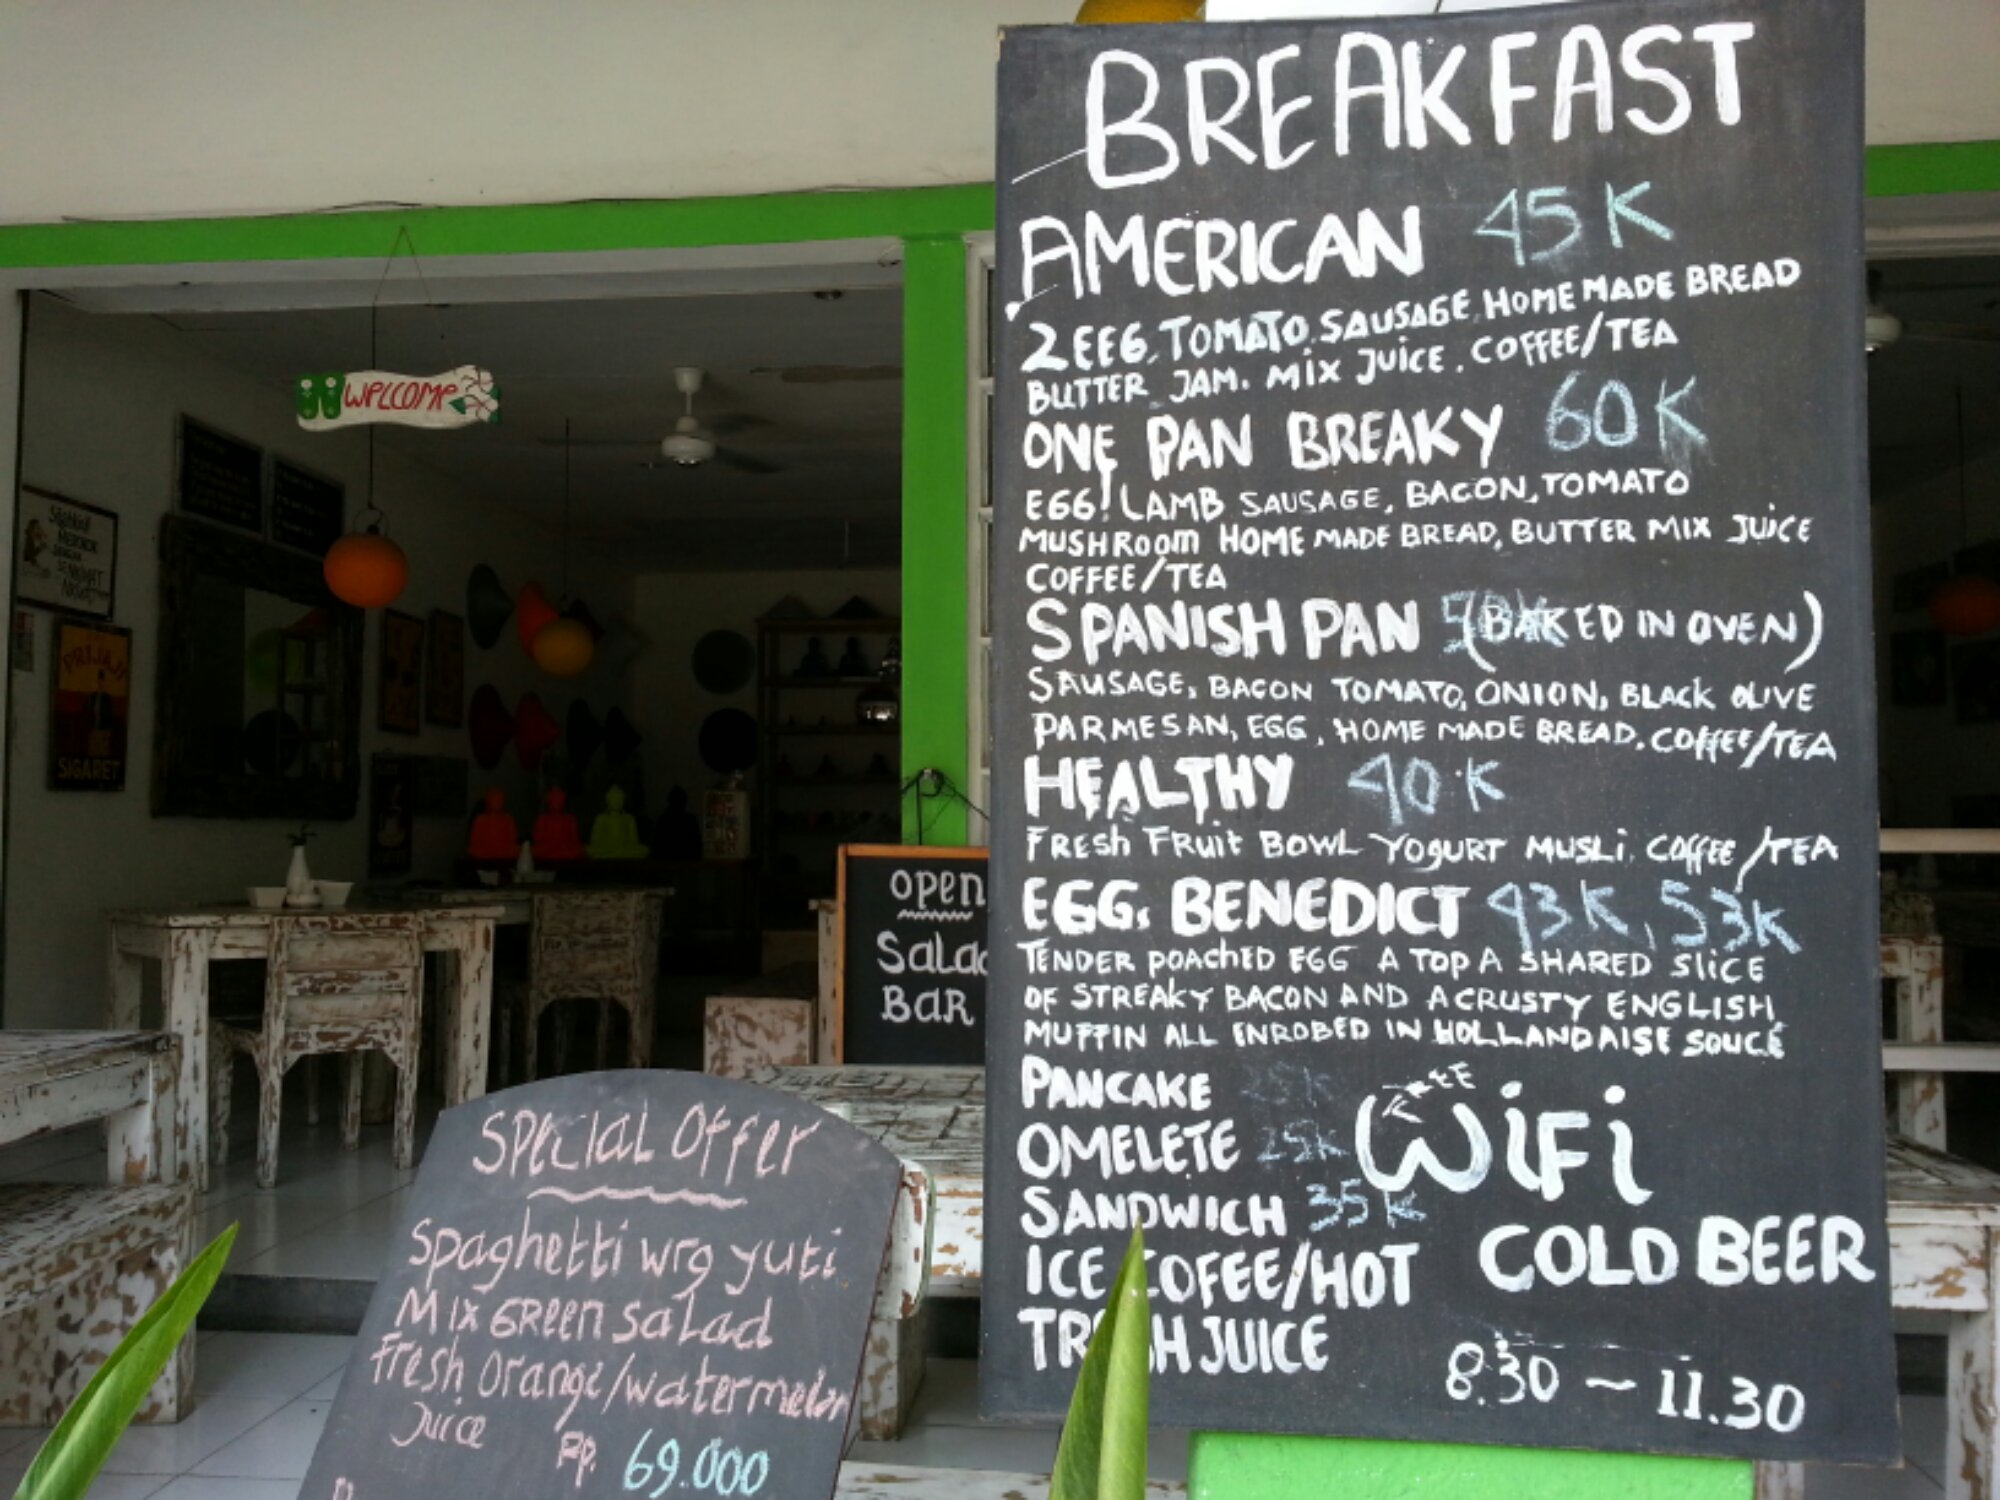 BREAKFAST
AMERICAN 45K
2 EEG, TOMATO, SAUSAGE, HOME MADE BREAD
BUTTER JAM. MIX JUICE. COFFEE/TEA
ONE PAN BREAKY 60K
EGG! LAMB SAUSAGE, BACON, TOMATO
MUSHROOM HOME MADE BREAD, BUTTER MIX JUICE
COFFEE/TEA
SPANISH PAN (BAKED IN OVEN)
SAUSAGE, BACON TOMATO, ONION, BLACK OLIVE
PARMESAN, EGG, HOME MADE BREAD. COFFEE/TEA
HEALTHY 40K
FRESH FRUIT BOWL YOGURT MUSLI. COFFEE/TEA
EGG. BENEDICT 43K, 53K
TENDER POACHED EGG A TOP A SHARED SLICE
OF STREAKY BACON AND A CRUSTY ENGLISH
MUFFIN ALL ENROBED IN HOLLANDAISE SOUCE
PANCAKE
OMELETE 25K
SANDWICH 35K
ICE COFEE/HOT
JUICE
FREE
WiFi
COLD BEER
8.30 ~ 11.30
WELCOME
OPEN
SALAD
BAR
SPECIAL OFFER
Spaghetti wrg yuti
MIX GREEN SALAD
Fresh Orange/watermelon
Juice Rp. 69.000
SIGARET